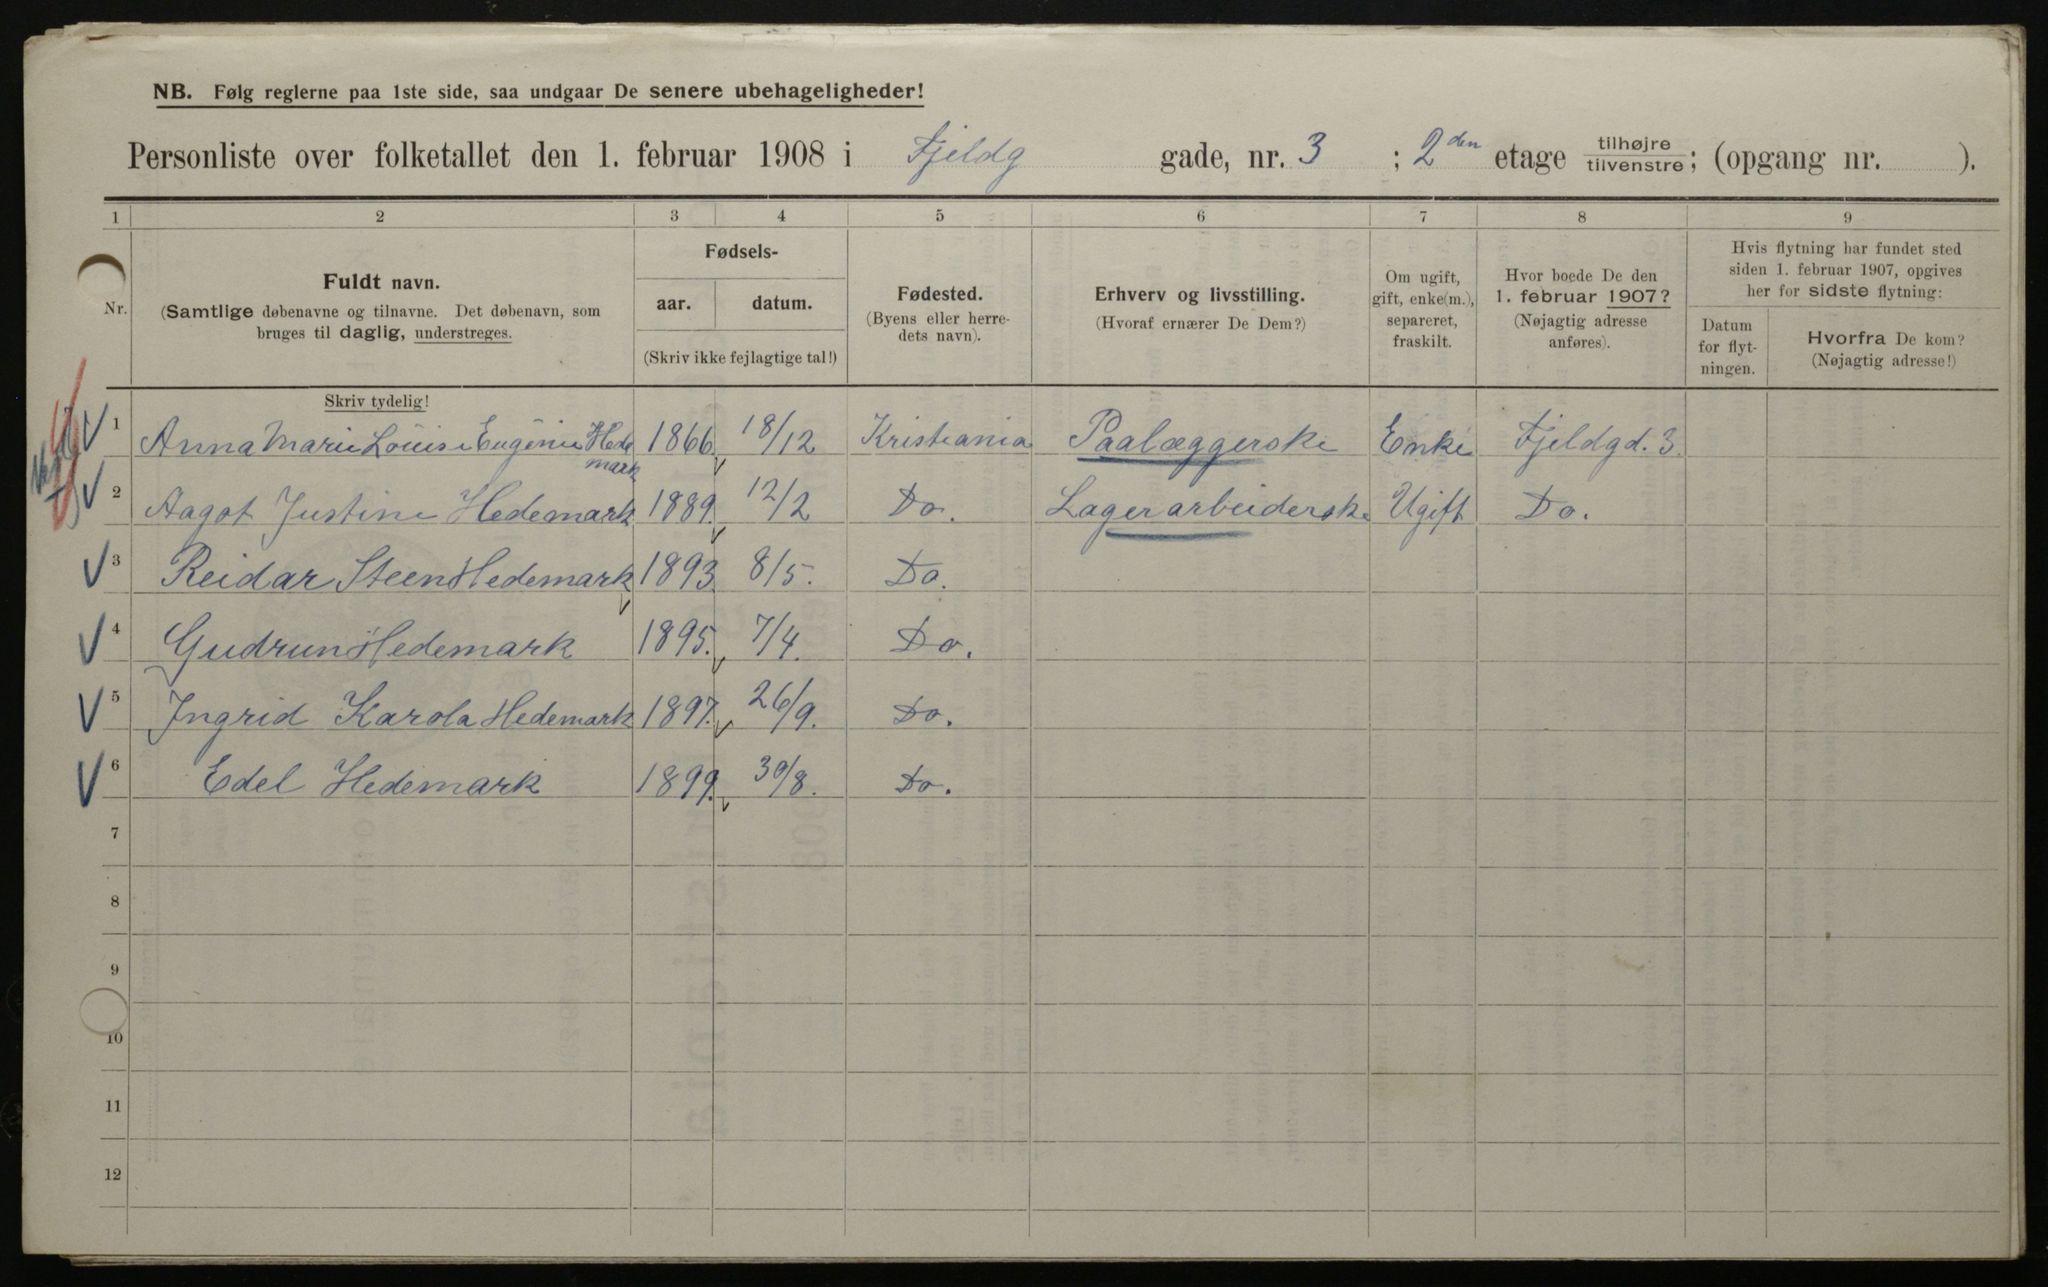 NB. Følg reglerne paa 1ste side, saa undgaar De senere ubehageligheder!
Personliste over folketallet den 1. februar 1908 i Fjeldg gade, nr. 3 ; 2den etage tilhøjre/tilvenstre; (opgang nr. ).
1 2 3 4 5 6 7 8 9
Nr.
Fuldt navn.
(Samtlige døbenavne og tilnavne. Det døbenavn, som
bruges til daglig, understreges.
Fødsels-
aar. datum.
(Skriv ikke fejlagtige tal!)
Fødested.
(Byens eller herre-
dets navn).
Erhverv og livsstilling.
(Hvoraf ernærer De Dem?)
Om ugift,
gift, enke(m.),
separeret,
fraskilt.
Hvor boede De den
1. februar 1907?
(Nøjagtig adresse
anføres).
Hvis flytning har fundet sted
siden 1. februar 1907, opgives
her for sidste flytning:
Datum
for flyt-
ningen.
Hvorfra De kom?
(Nøjagtig adresse!)
Skriv tydelig!
1 Anna Marie Louise Eugenie Hede 1866 18/12 Kristiania Paalæggerske Enke Fjeldgd. 3.
mark
2 Aagot Justine Hedemark 1889. 12/2 Do. Lagerarbeiderske Ugift Do.
3 Reidar Steen Hedemark 1893. 8/5. Do.
4 Gudrun Hedemark 1895. 7/4. Do.
5 Ingrid Karola Hedemark 1897. 26/9. Do.
6 Edel Hedemark 1899. 30/8. Do.
7
8
9
10
11
12